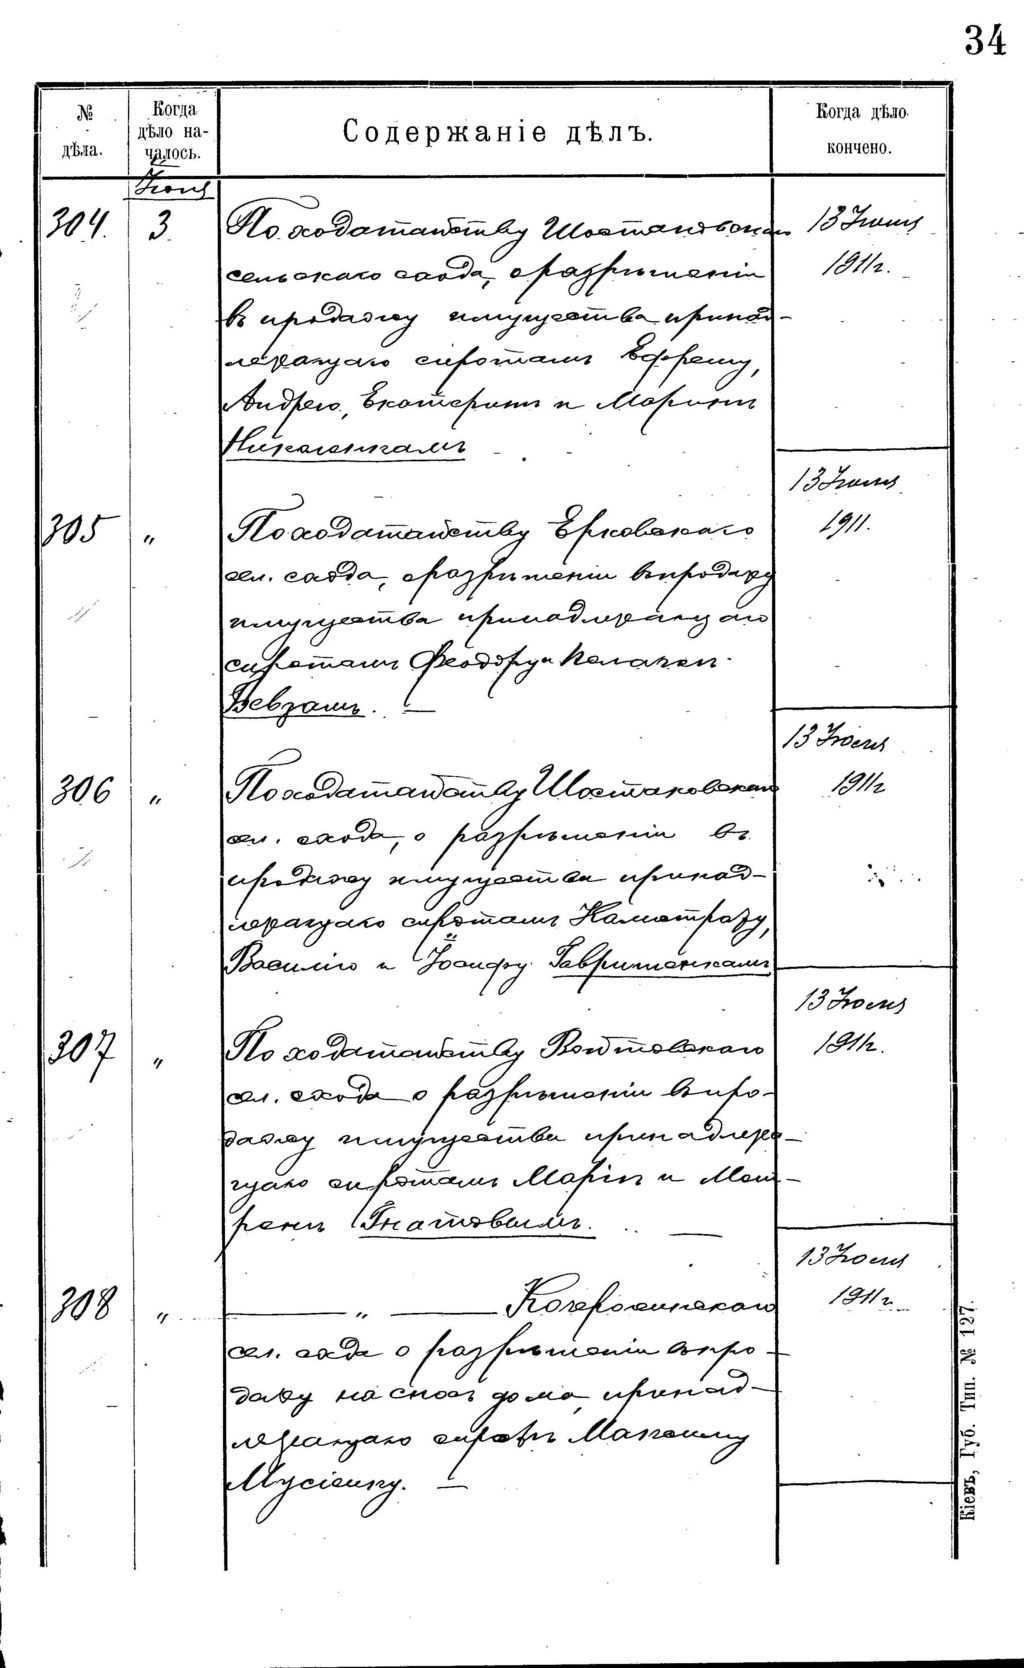 34
№ дѣла.
Когда дѣло на-
чалось.
Содержаніе дѣлъ.
Когда дѣло
кончено.
304.
3
По ходатайству
13
сельскаго схода, о разрѣшеніи
1911г.
въ продажу имущества принад-
лежащаго сиротамъ Ефрему,
Андрею, Екатеринѣ и Маринѣ
Николенкамъ
13
305
"
По ходатайству Ерковскаго
1911.
сел. схода, о разрѣшеніи въ продажу
имущества принадлежащаго
сиротамъ Феодору и
Бевзамъ.
13
306
"
По ходатайству Шостаковскаго
1911г
сел. схода, о разрѣшеніи въ
продажу имущества принад-
лежащаго сиротамъ Калистрату,
Василію и Іосифу Гавриленкамъ
13
307
"
По ходатайству Войтовскаго
1911г.
сел. схода о разрѣшеніи въ про-
дажу имущества принадлежа-
щаго сиротамъ Маріи и Мат-
ренѣ Гнатовымъ.
13
308
"
"
1911г.
сел. схода о разрѣшеніи въ про-
дажу на сносъ дома, принад-
лежащаго сиротѣ Максиму
Мусіенку.
Кіевъ, Губ. Тип. № 127.